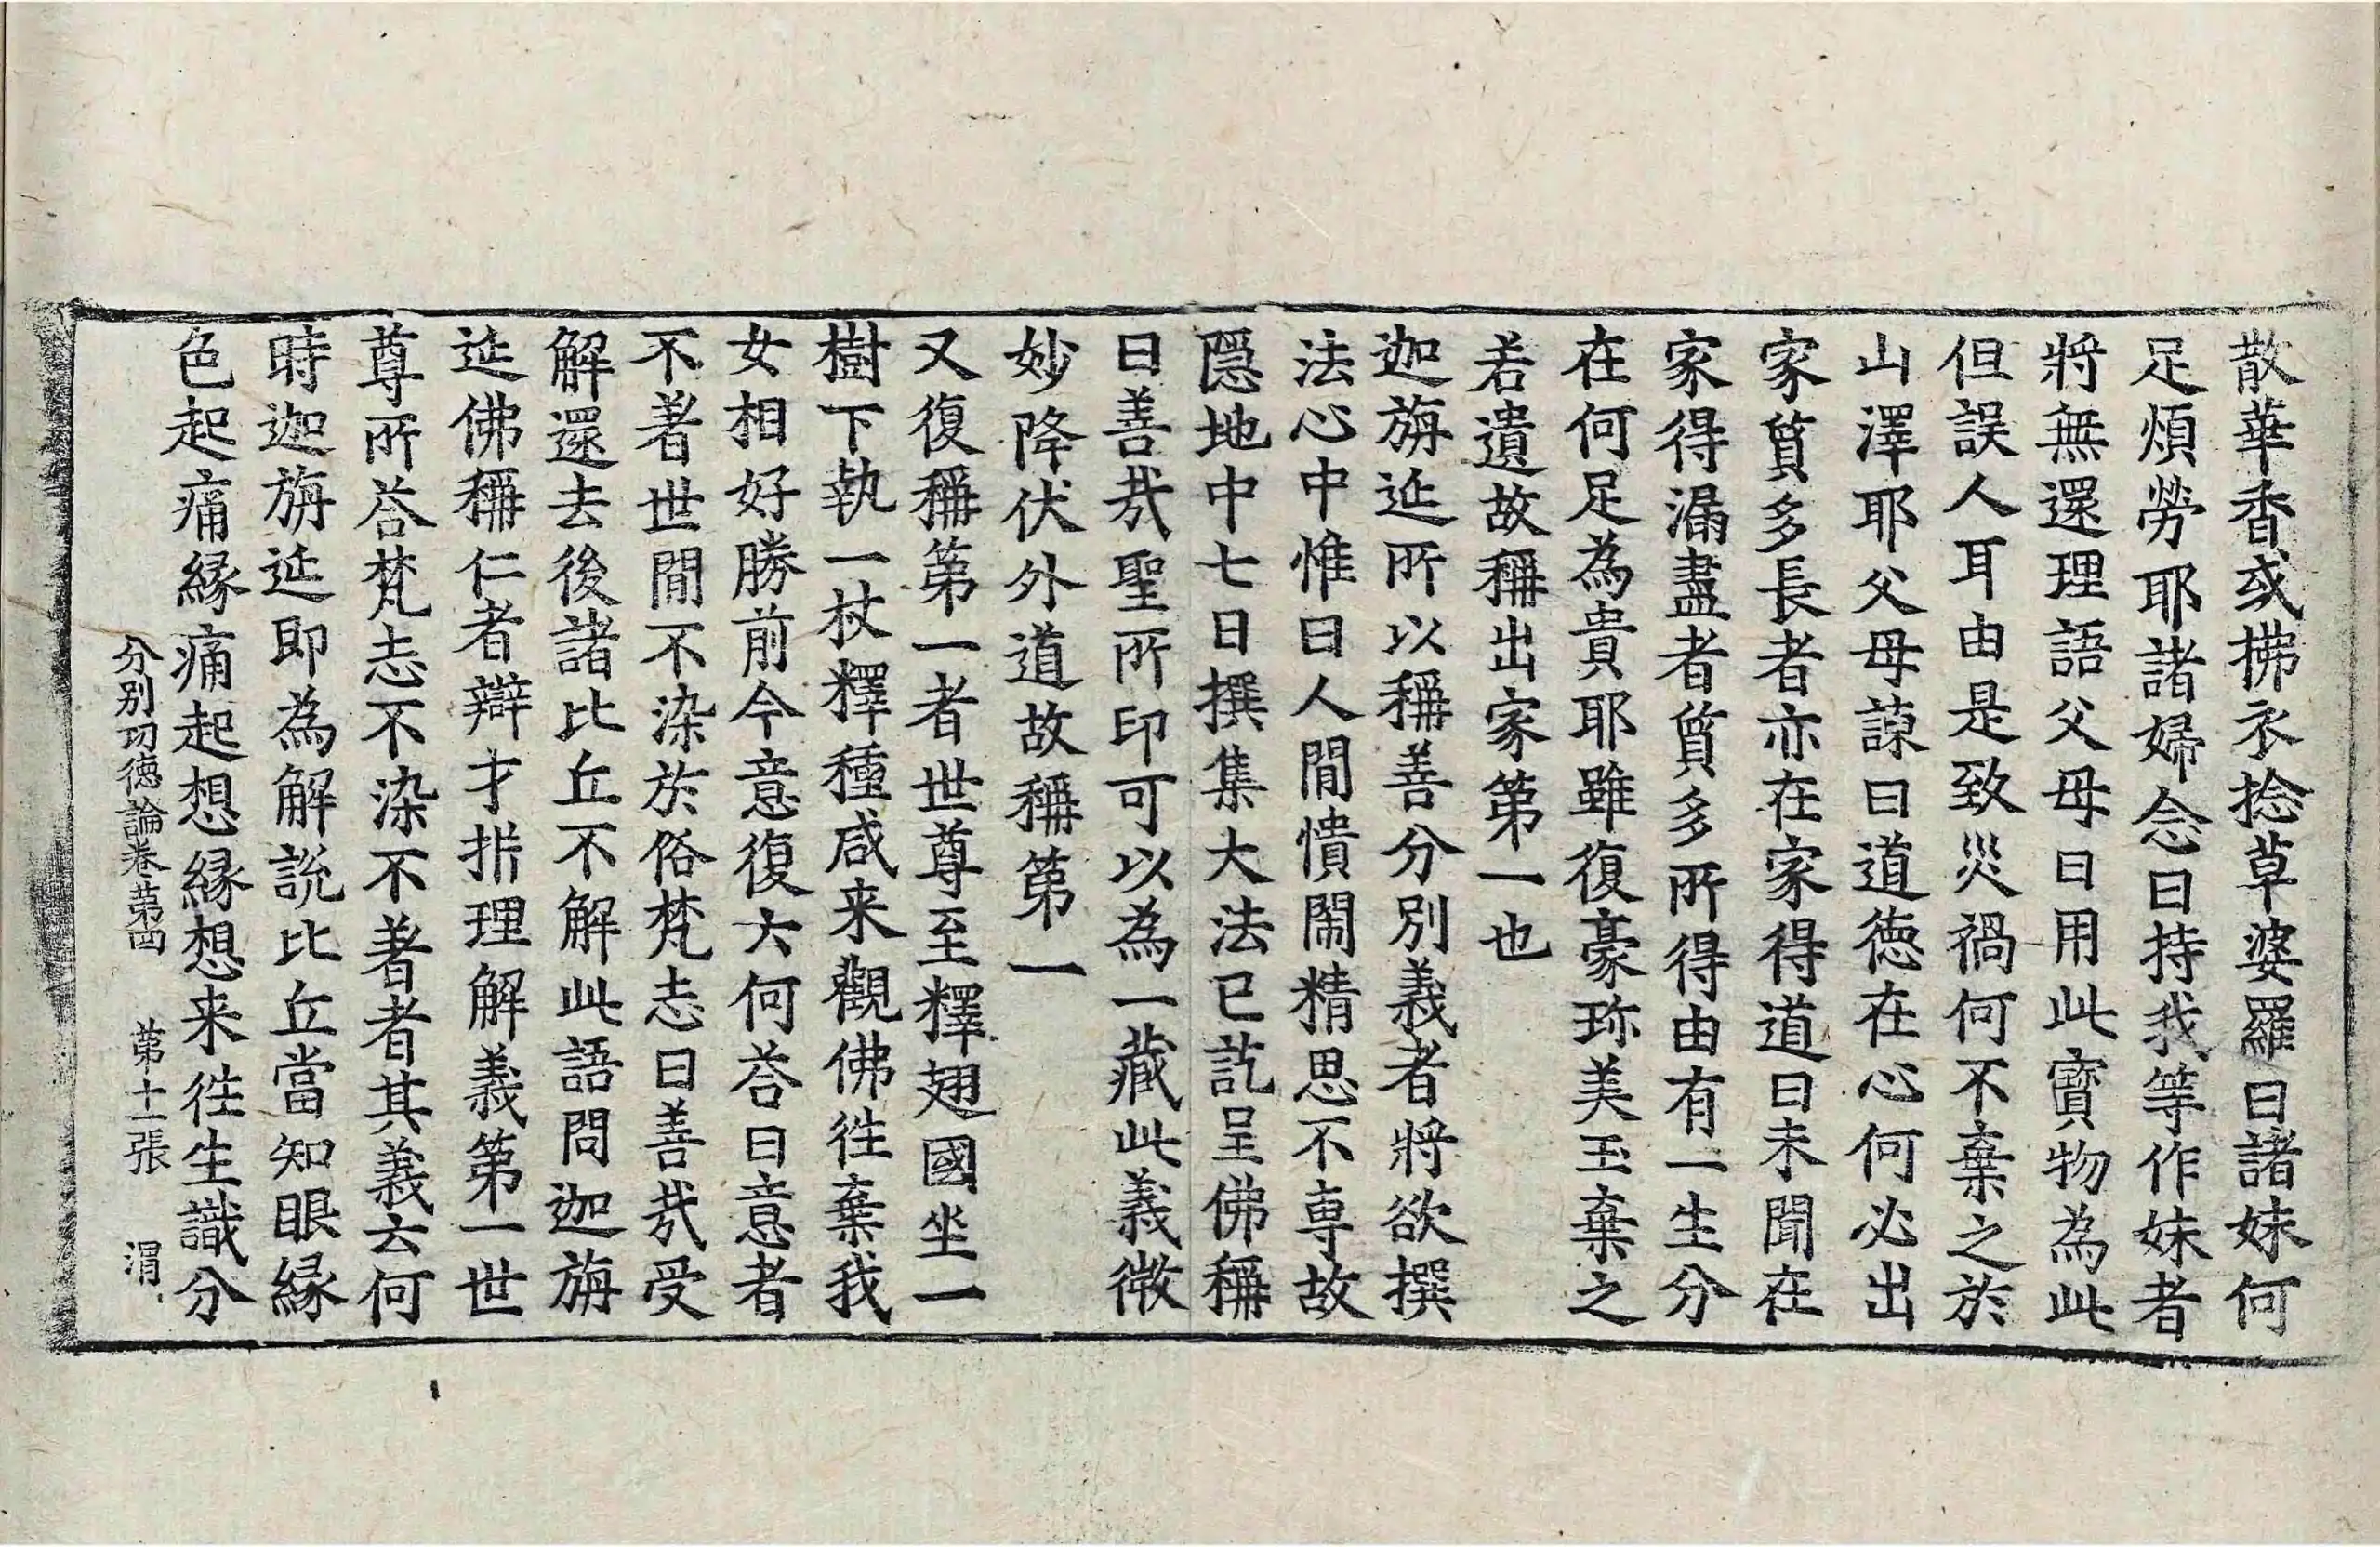 散華香或拂衣捻草婆羅曰諸妹何
足煩勞耶諸婦念曰持我等作妹者
將無還理語父母曰用此寶物為此
但誤人耳由是致災禍何不棄之於
山澤耶父母諫曰道徳在心何必出
家質多長者亦在家得道曰未聞在
家得漏盡者質多所得由有一生分
在何足為貴耶雖復豪珎美玉棄之
若遺故稱出家第一也
迦旃延所以稱善分別義者將欲撰
法心中惟曰人閒憒閙精思不專故
隱地中七日撰集大法已訖呈佛稱
曰善哉聖所印可以為一藏此義微
妙降伏外道故稱第一
又復稱第一者世尊至釋翅國坐一
樹下執一杖釋種咸来觀佛徃棄我
女相好勝前今意復云何荅曰意者
不著世閒不染於俗梵志曰善哉受
解還去後諸比丘不解此語問迦旃
延佛稱仁者辯才析理解義第一世
尊所荅梵志不染不著者其義云何
時迦旃延即為解說比丘當知眼縁
色起痛縁痛起想縁想来徃生識分
分別功德論卷第四 第十一張 渭